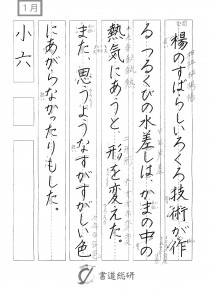 1月
楊のすばらしいろくろ技術が作
る つるくびの水差しは、かまの中の
熱気にあうと、形を変えた。
また、思うようなすがすがしい色
にあがらなかったりもした。
小六
書道総研